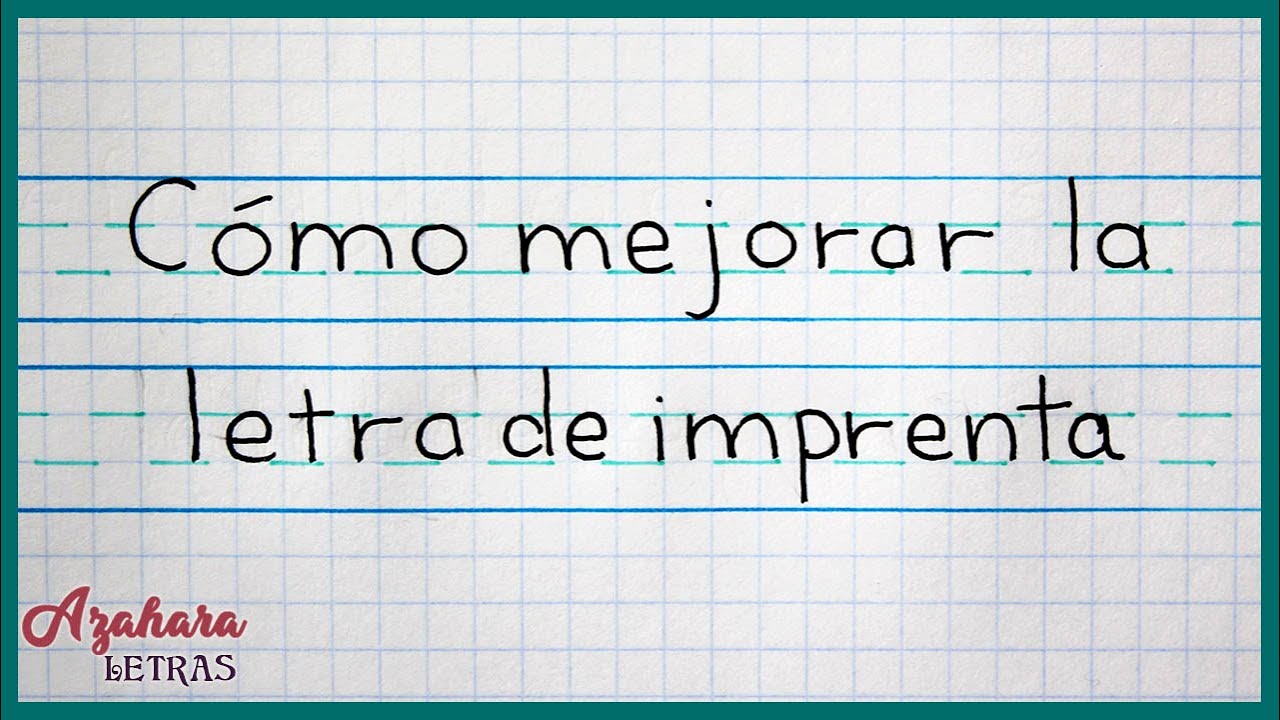 Cómo mejorar la
letra de imprenta
Azahara
LETRAS